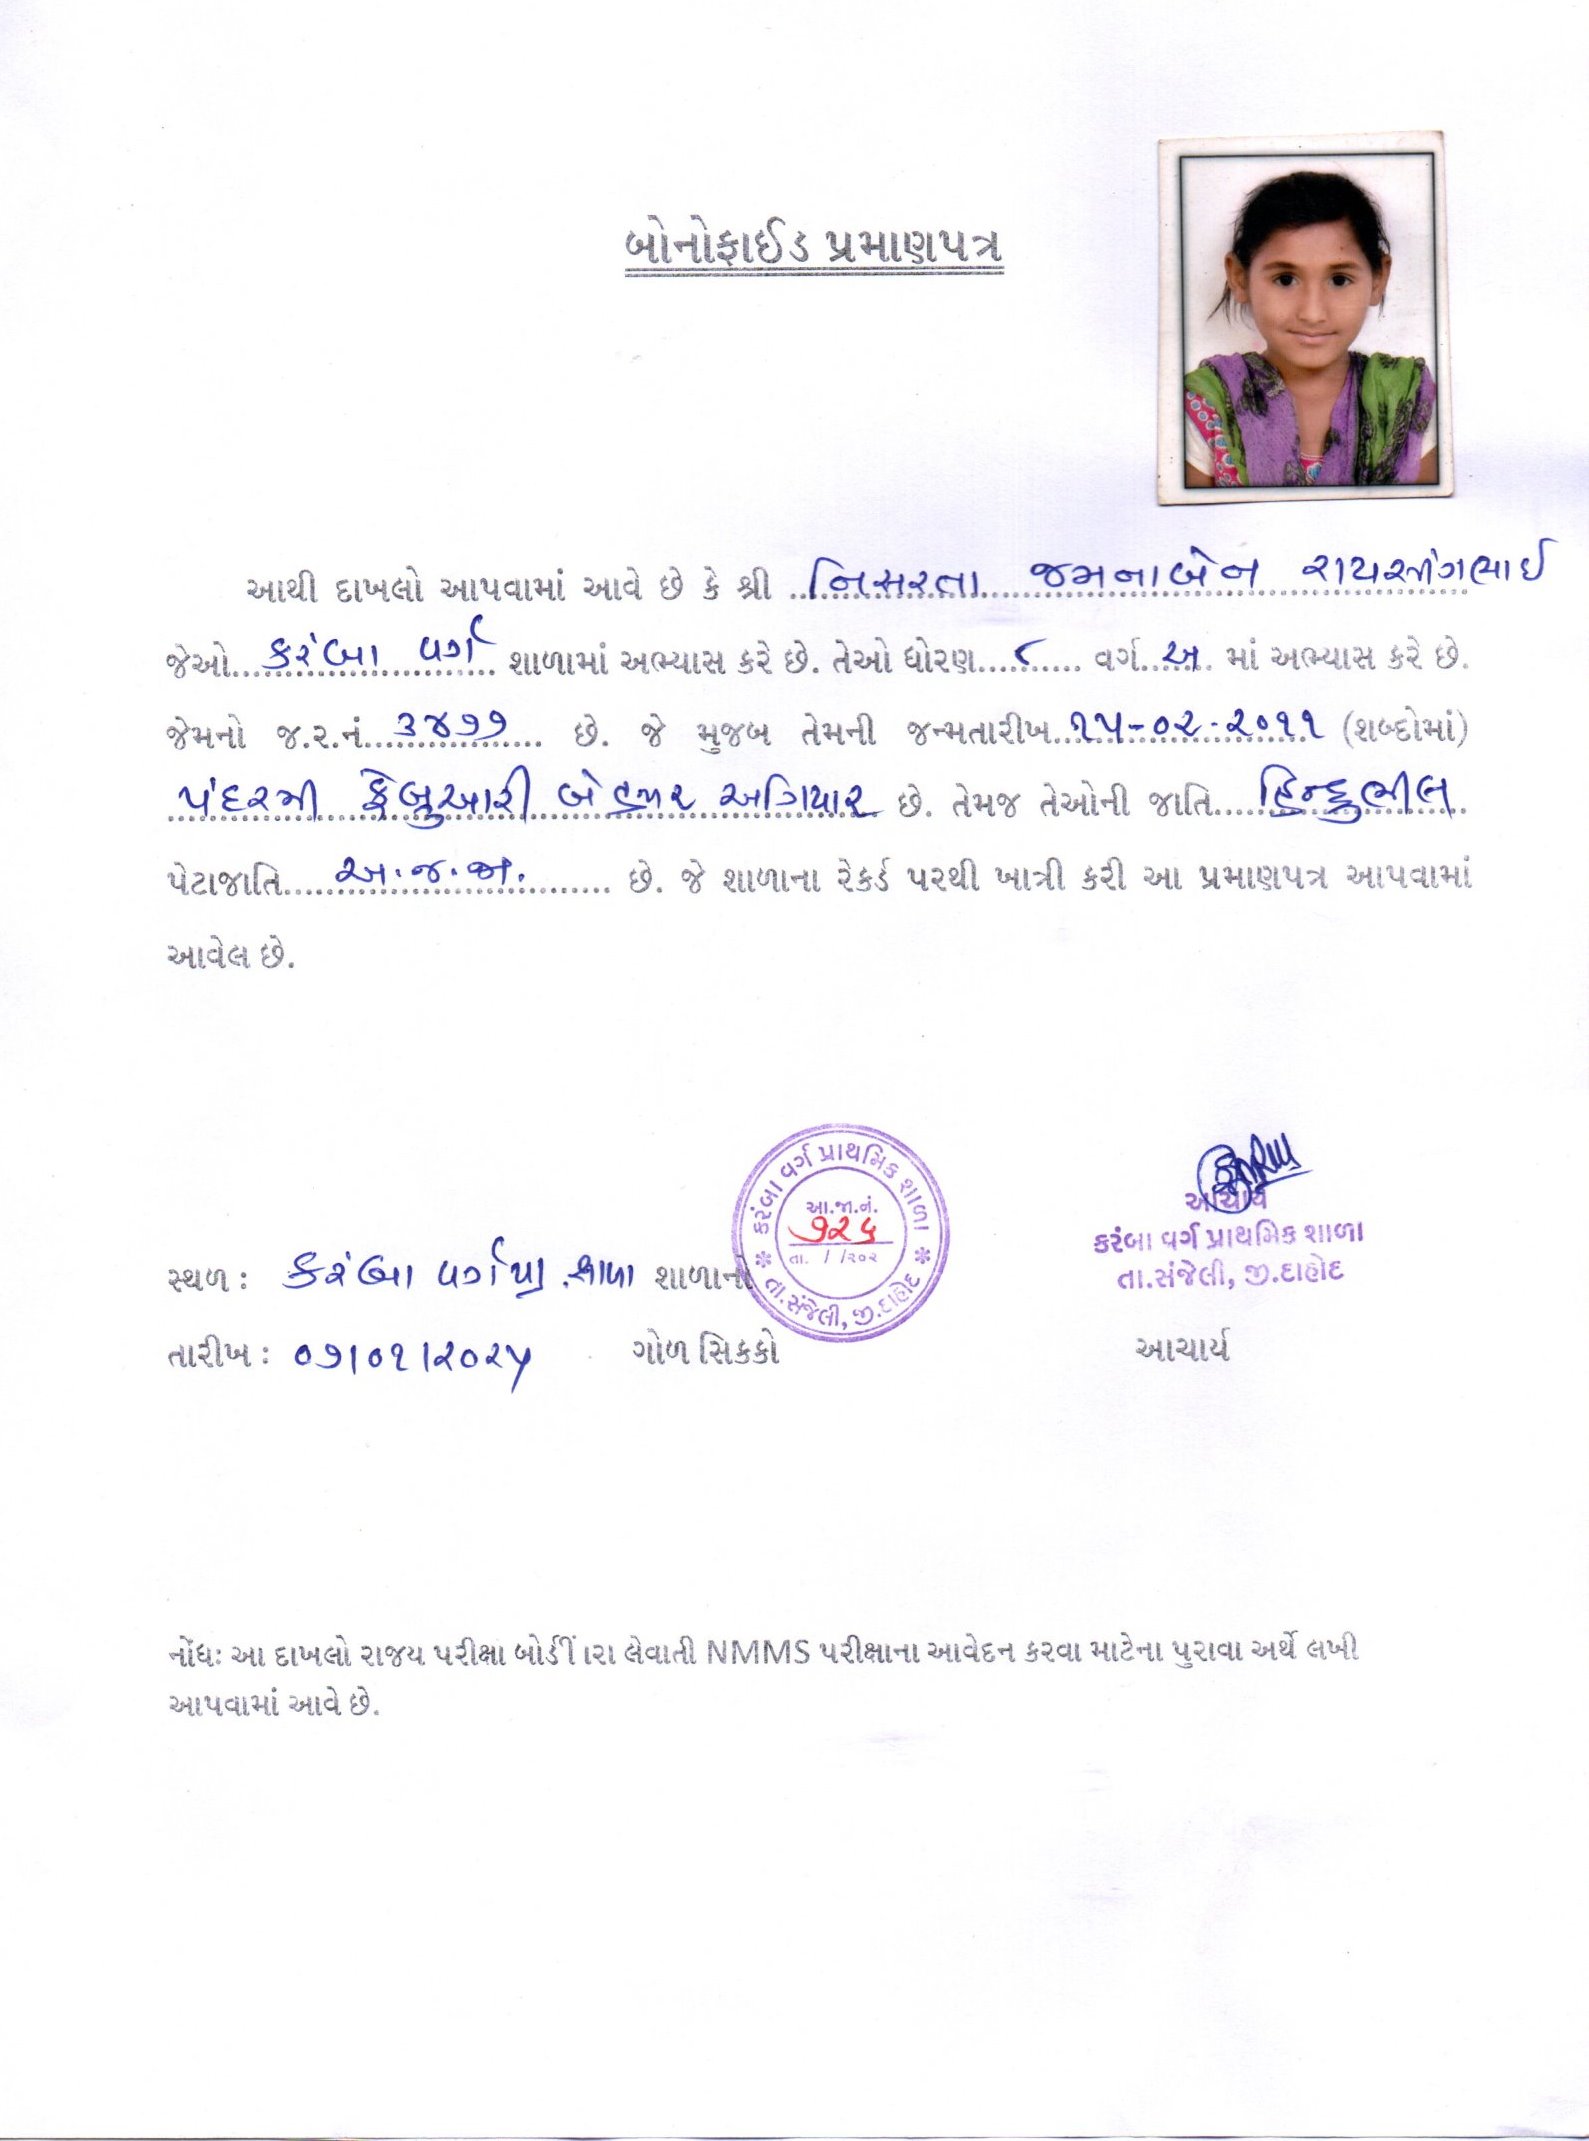 બોનોફાઈડ પ્રમાણપત્ર
આથી દાખલો આપવામાં આવે છે કે શ્રી નિસરતા જમનાબેન રાયસીંગભાઈ
જેઓ કરંબા વર્ગ શાળામાં અભ્યાસ કરે છે. તેઓ ધોરણ ૮ વર્ગ અ માં અભ્યાસ કરે છે.
જેમનો જ.ર.નં. ૩૪૭૭ છે. જે મુજબ તેમની જન્મતારીખ ૧૫-૦૨-૨૦૧૧ (શબ્દોમાં)
પંદરમી ફેબ્રુઆરી બેહજાર અગિયાર છે. તેમજ તેઓની જાતિ હિન્દુભીલ
પેટાજાતિ અ.જ.જા. છે. જે શાળાના રેકર્ડ પરથી ખાત્રી કરી આ પ્રમાણપત્ર આપવામાં
આવેલ છે.
કરંબા વર્ગ પ્રાથમિક શાળા
આ.જા.નં.
૭૨૬
તા. / /૨૦૨
તા.સંજેલી, જી.દાહોદ
આચાર્ય
કરંબા વર્ગ પ્રાથમિક શાળા
તા.સંજેલી, જી.દાહોદ
સ્થળ : કરંબા વર્ગ પ્રા.શાળા શાળાનો
તારીખ : ૦૭/૦૧/૨૦૨૫ ગોળ સિકકો આચાર્ય
નોંધઃ આ દાખલો રાજય પરીક્ષા બોર્ડીં ારા લેવાતી NMMS પરીક્ષાના આવેદન કરવા માટેના પુરાવા અર્થે લખી
આપવામાં આવે છે.